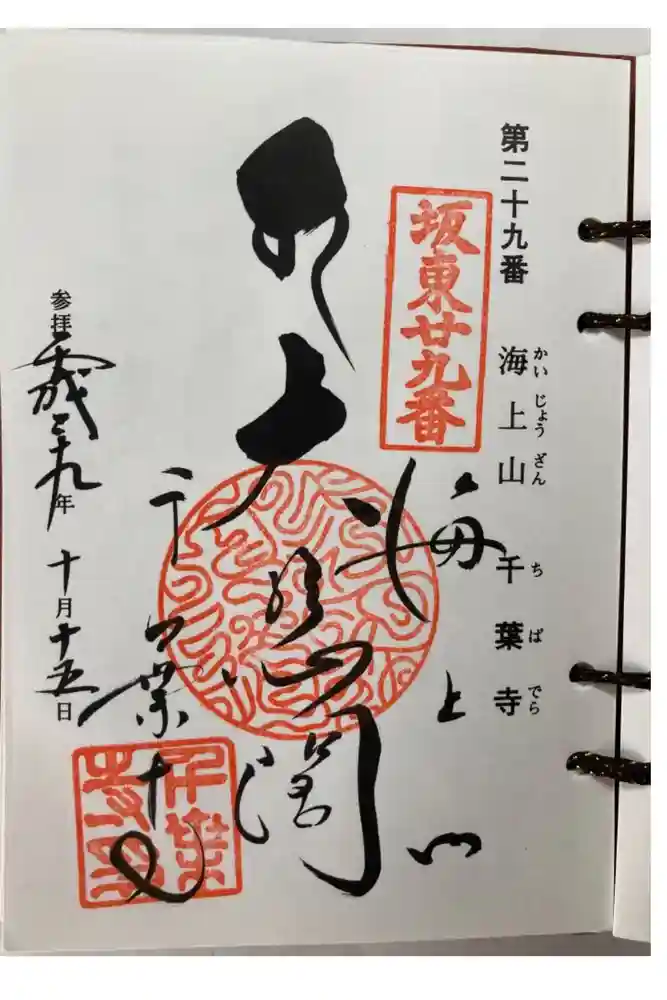 第二十九番 海上山 千葉寺
かい じょう ざん ち ば でら
坂東廿九番
海上山
大悲閣
千葉寺
参拝 平成二十九年 十月十五日